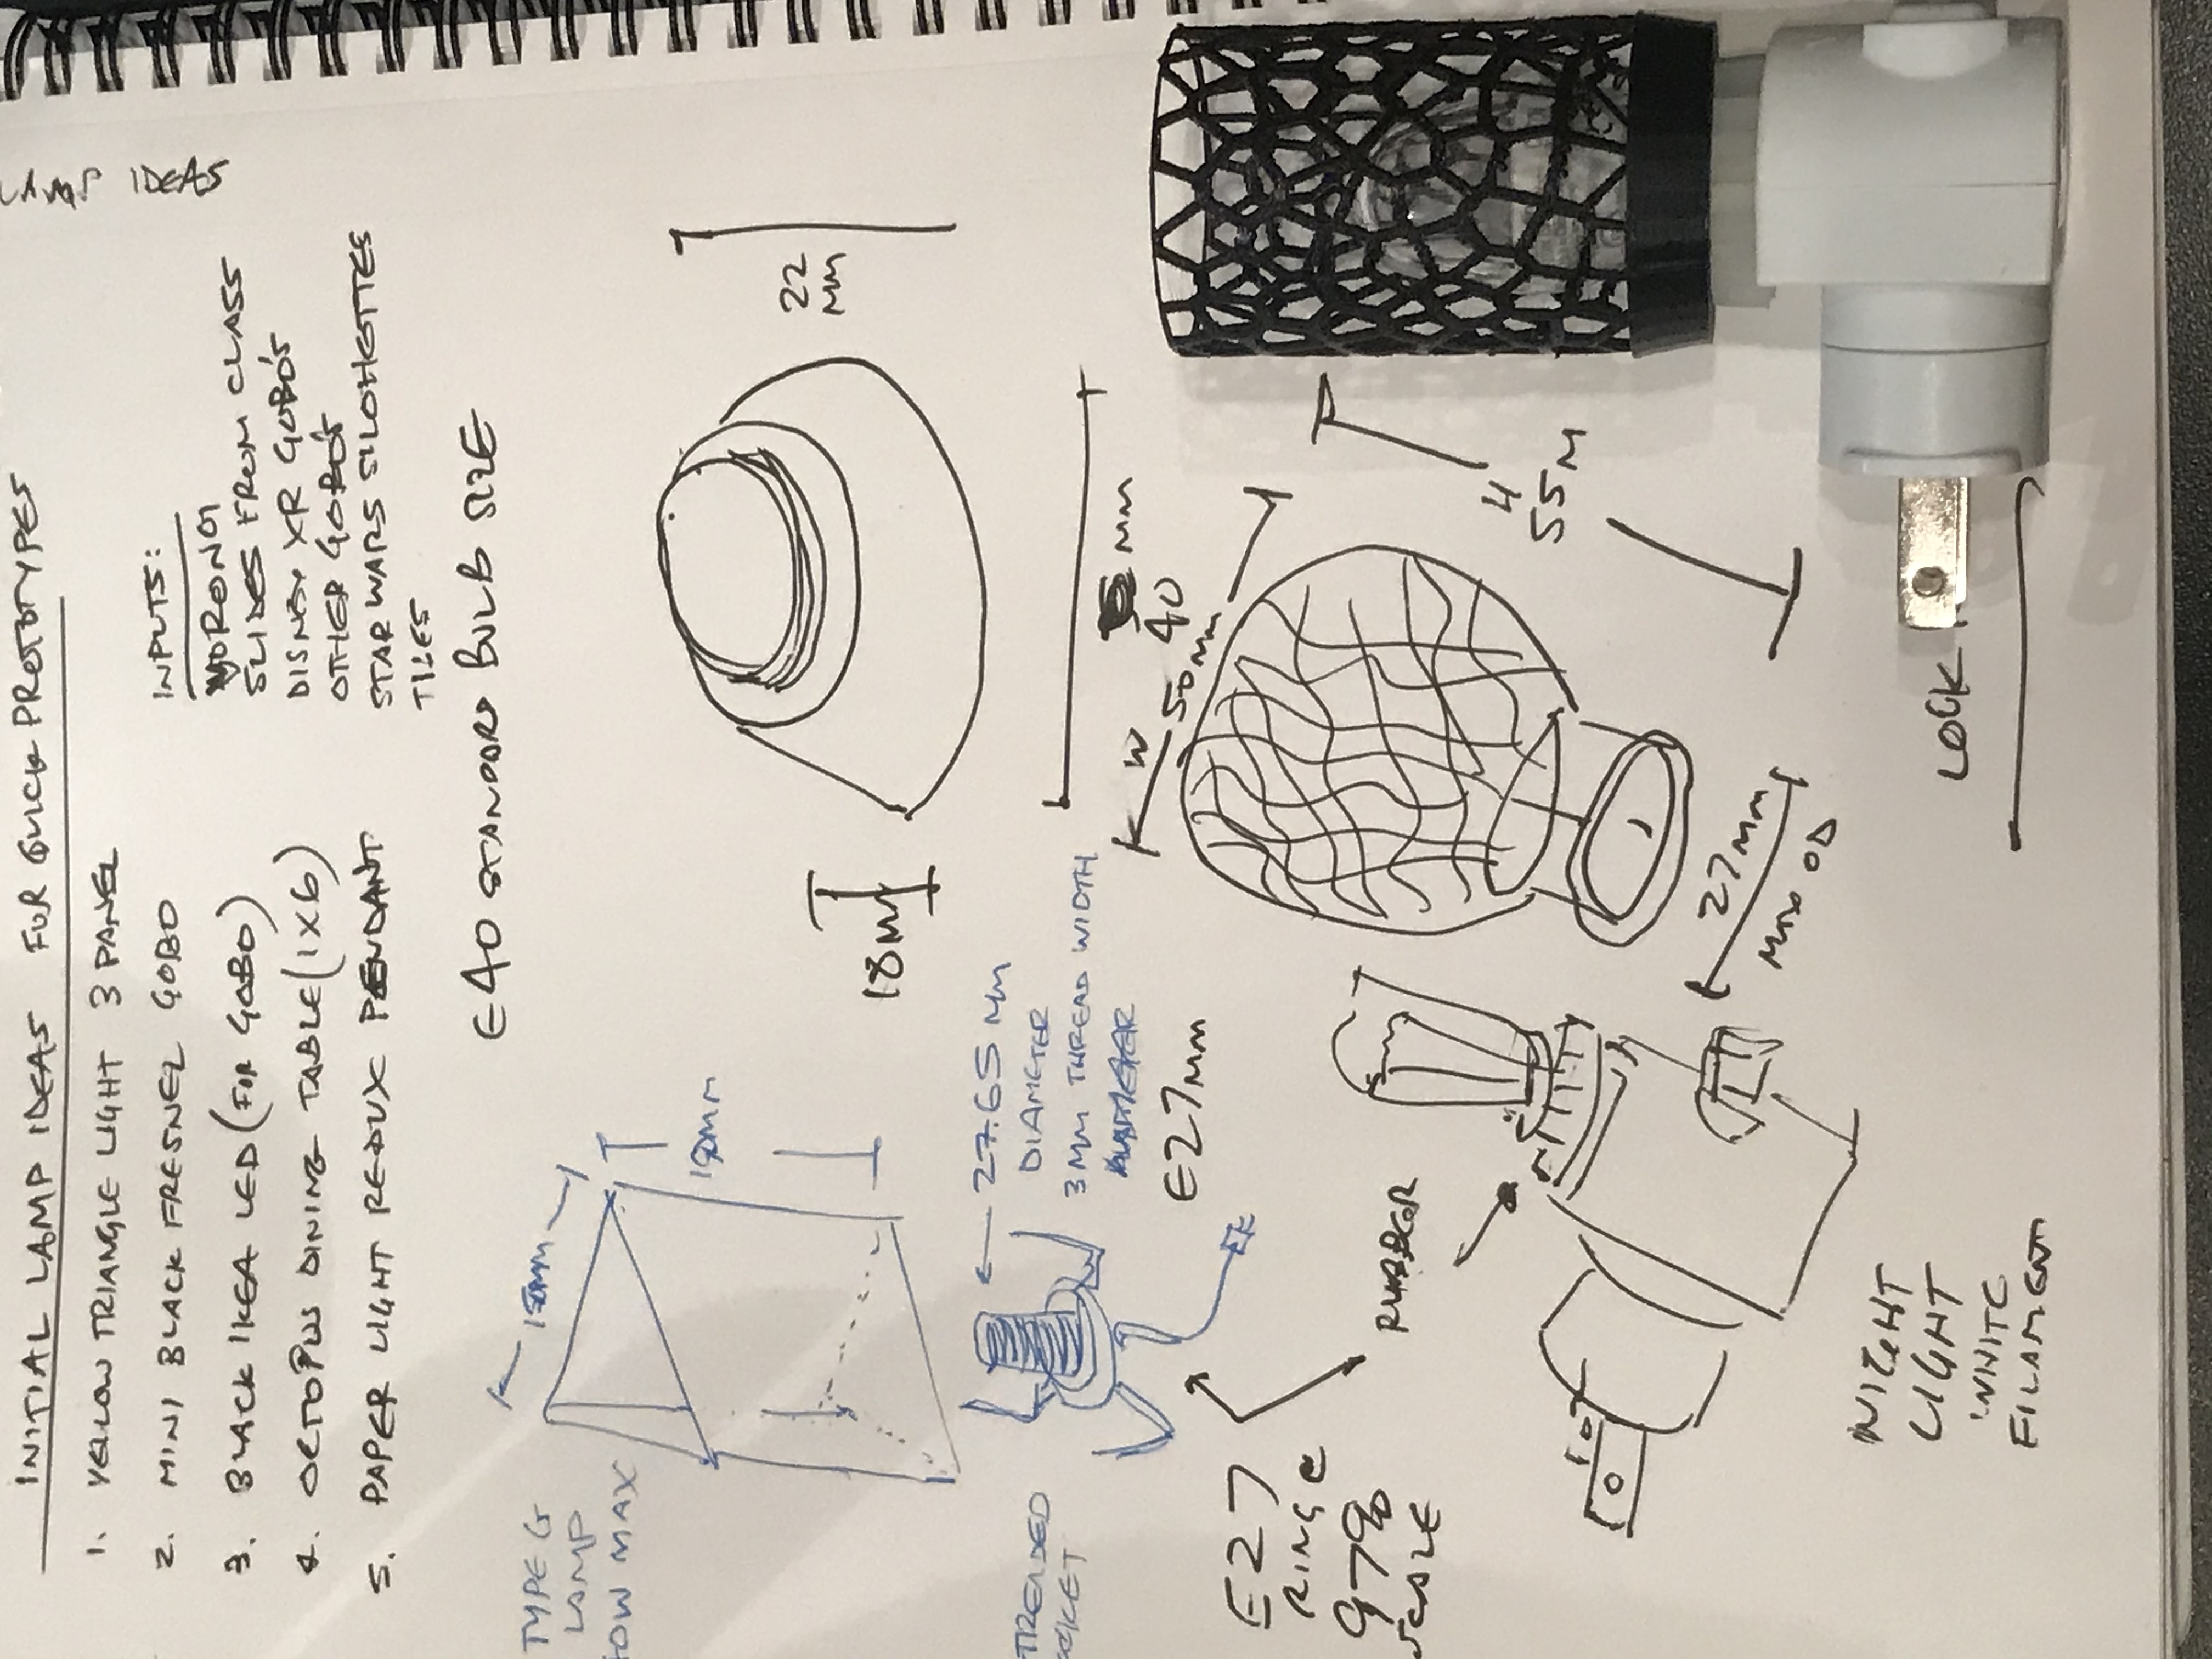 INITIAL LAMP IDEAS FOR QUICK PROTOTYPES
1. YELLOW TRIANGLE LIGHT 3 PANEL
2. MINI BLACK FRESNEL GOBO
3. BLACK IKEA LED (FOR GOBO)
4. OCTOPUS DINING TABLE (1X6)
5. PAPER LIGHT REDUX PENDANT
LAMP IDEAS
INPUTS:
VORONOI
SLIDES FROM CLASS
DISNEY XR GOBO'S
OTHER GOBO'S
STAR WARS SILOHETTES
TILES
E40 STANDARD BULB SIZE
TYPE G
LAMP
40W MAX
150MM
27.65 MM
DIAMETER
3MM THREAD WIDTH
E27MM
22
MM
18M
MM
40
E27
RING @
97%
SCALE
W
50MM
H
55M
27MM
MAX OD
NIGHT
LIGHT
WHITE
FILAMENT
LOCK